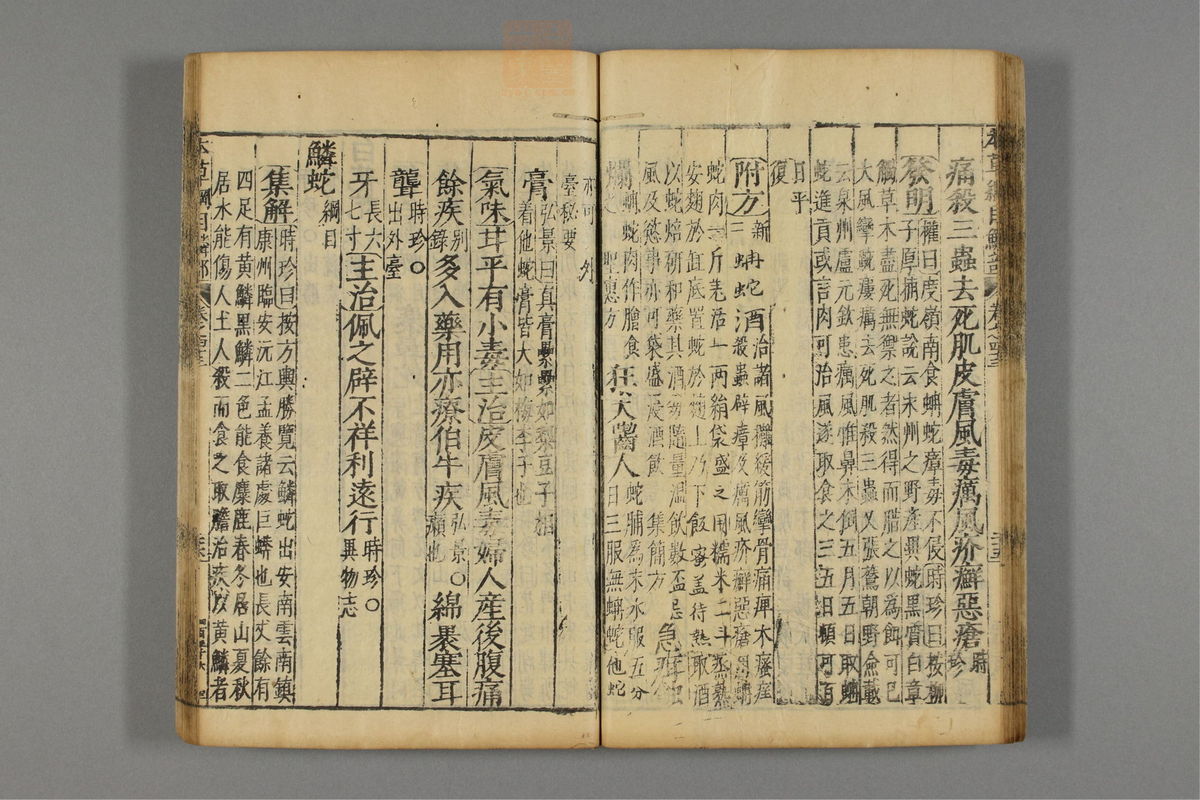 痛殺三蟲去死肌皮膚風毒癘風疥癬惡瘡時珍
發明權曰度嶺南食蚺蛇瘴毒不侵時珍曰按柳
子厚捕蛇說云永州之野產異蛇黑質白章
觸草木盡死無禦之者然得而腊之以為餌可已
大風攣踠瘻癘去死肌殺三蟲又張鷟朝野僉載
云泉州盧元欽患癘風惟鼻未倒五月五日取蚺
蛇進貢或言肉可治風遂取食之三五日頓可百
日平
復
附方新三蚺蛇酒治諸風癱緩筋攣骨痛痺木瘙痒
殺蟲辟瘴及癘風疥癬惡瘡用蚺
蛇肉一斤羌活一兩絹袋盛之用糯米二斗蒸熟
安麴於缸底置蛇於麴上乃下飯密蓋待熟取酒
以蛇焙研和藥其酒每隨量溫飲數盃忌
風及慾事亦可袋盛浸酒飲 集簡方 急
蚺蛇肉作膾食 聖惠方 狂犬嚙人蛇脯為末水服五分
日三服無蚺蛇他蛇
亦可 外
臺秘要
膏弘景曰真膏纍纍如梨豆子相
着他蛇膏皆大如梅李子也
氣味甘平有小毒主治皮膚風毒婦人產後腹痛
餘疾別錄多入藥用亦療伯牛疾弘景〇癩也綿裹塞耳
聾時珍〇出外臺
牙長六七寸主治佩之辟不祥利遠行時珍〇異物志
鱗蛇綱目
集解時珍曰按方輿勝覽云鱗蛇出安南雲南鎮
康州臨安沅江孟養諸處巨蟒也長丈餘有
四足有黃鱗黑鱗二色能食麋鹿春冬居山夏秋
居水能傷人土人殺而食之取膽治疾以黃鱗者
本草綱目鱗部